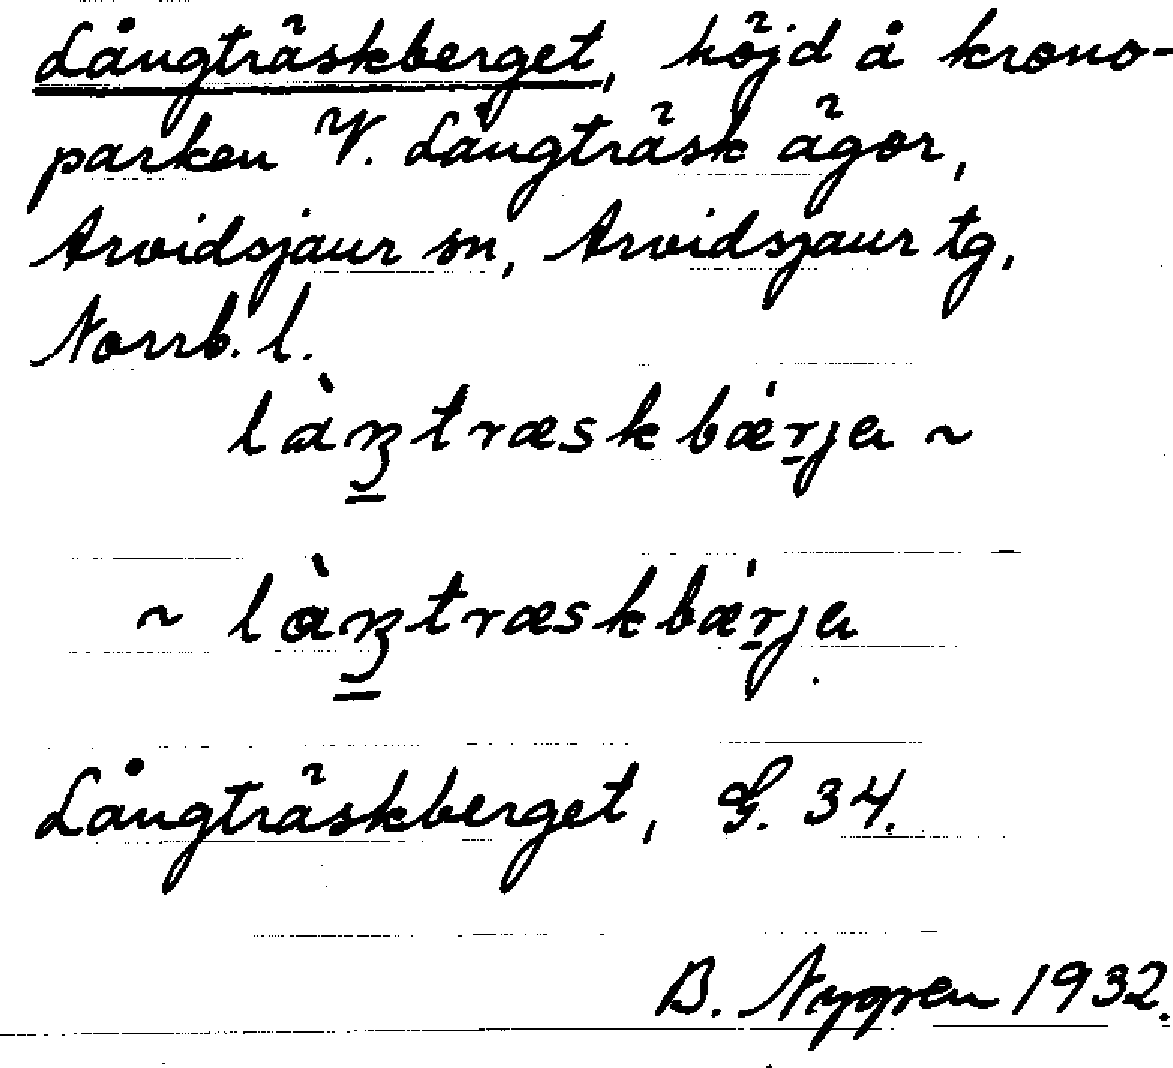 Långträskberget, höjd å krono-
parken V. Långträsk ägor,
Arvidsjaur sn, Arvidsjaur tg,
Norrb. l.
làŋtræskbǽrja ~
~ làŋtræskbǽrja
Långträskberget, G. 34.
B. Nygren 1932.